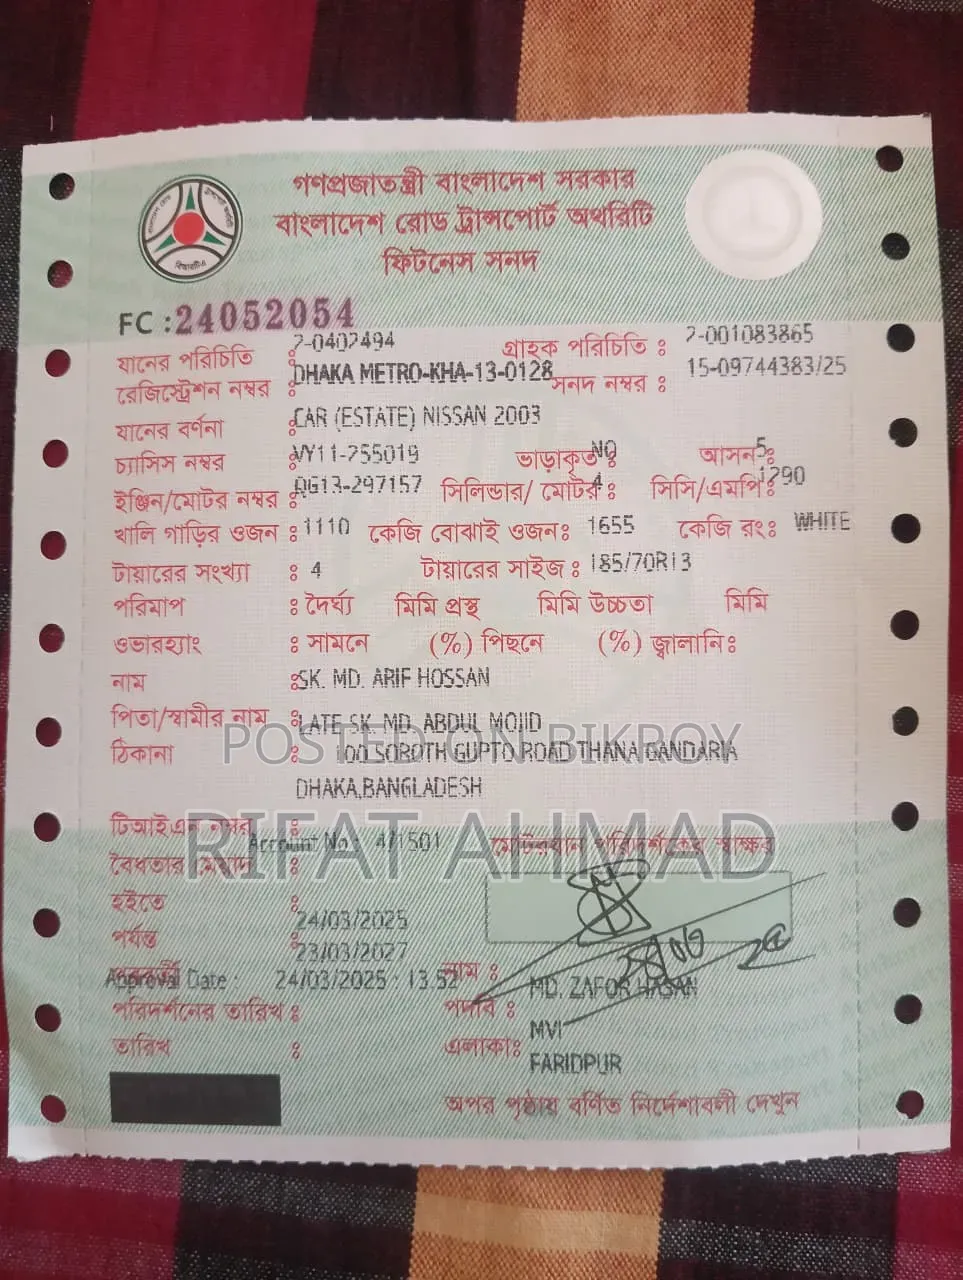 গণপ্রজাতন্ত্রী বাংলাদেশ সরকার
বাংলাদেশ রোড ট্রান্সপোর্ট অথরিটি
ফিটনেস সনদ
FC : 24052054
যানের পরিচিতি : 2-0402494 গ্রাহক পরিচিতি : 2-001083865
রেজিস্ট্রেশন নম্বর : DHAKA METRO-KHA-13-0128 সনদ নম্বর : 15-09744383/25
যানের বর্ণনা : CAR (ESTATE) NISSAN 2003
চ্যাসিস নম্বর : VY11-255019 ভাড়াকৃত : NO আসন : 5
ইঞ্জিন/মোটর নম্বর : QG13-297157 সিলিন্ডার/ মোটর : 4 সিসি/এমপি : 1290
খালি গাড়ির ওজন : 1110 কেজি বোঝাই ওজন : 1655 কেজি রং : WHITE
টায়ারের সংখ্যা : 4 টায়ারের সাইজ : 185/70R13
পরিমাপ : দৈর্ঘ্য মিমি প্রস্থ মিমি উচ্চতা মিমি
ওভারহ্যাং : সামনে (%) পিছনে (%) জ্বালানি :
নাম : SK. MD. ARIF HOSSAN
পিতা/স্বামীর নাম : LATE SK. MD. ABDUL MOJID
POSTED ON BIKROY
ঠিকানা : 100 SOROTH GUPTO ROAD THANA GANDARIA
DHAKA,BANGLADESH
RIFAT AHMAD
টিআইএন নম্বর :
Account No : 4/1501 মোটরযান পরিদর্শকের স্বাক্ষর
বৈধতার মেয়াদ :
হইতে : 24/03/2025
পর্যন্ত : 23/03/2027
Approval Date : 24/03/2025 : 13.52 নাম : MD. ZAFOR HASAN
পরিদর্শনের তারিখ : পদবি : MVI
তারিখ : এলাকা : FARIDPUR
অপর পৃষ্ঠায় বর্ণিত নির্দেশাবলী দেখুন